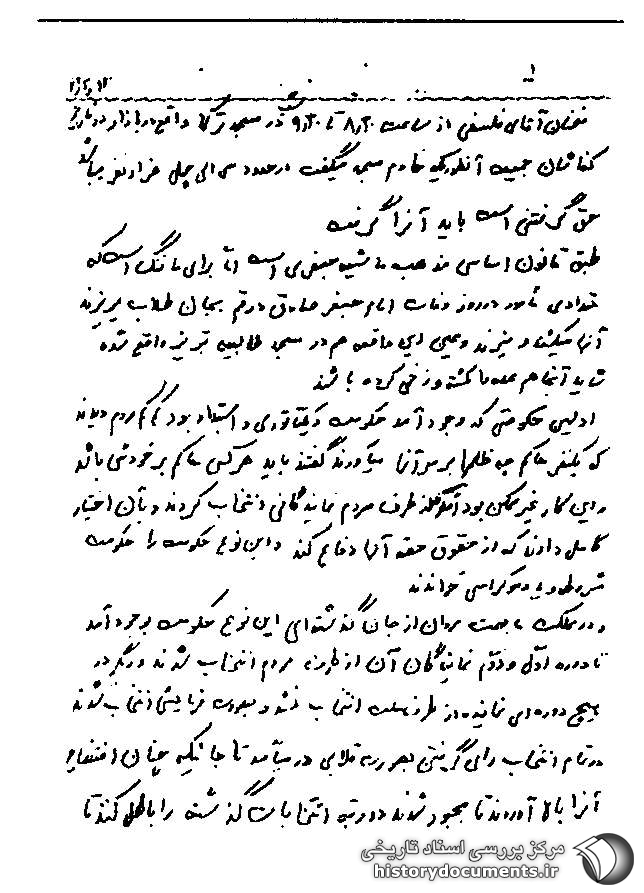 سخنان آقای فلسفی از ساعت ۸٫۳۰ تا ۹٫۳۰ در مسجد ترکها واقع در بازار
کفاشان جمعیت آنطوریکه خادم مسجد میگفت در حدود سی الی چهل هزار نفر میباشد
حق گرفتنی است باید آنرا گرفت
طبق قانون اساسی مذهب ما شیعه جعفری است اما برای ما ننگ است که
تعدادی مأمور در روز وفات امام جعفر صادق در قم بجان طلاب بریزند
آنها میکشند و میزنند و همین این واقعه هم در مسجد طالبیه تبریز واقع شده
شاید آنجا هم عده را کشته و زخمی کرده باشند
اولین حکومتی که بوجود آمد حکومت دیکتاتوری و استبداد بود کم کم مردم دیدند
که یکنفر حاکم چه ظلمها بر سر آنها میآورند گفتند باید هر کس حاکم بر خودش باشد
و این کار غیر ممکن بود از طرف مردم نمایندگانی انتخاب کردند و بآن اختیار
کامل دادند که از حقوق حقه آنها دفاع کند و این نوع حکومت را حکومت
مشروطه و یا دموکراسی خواندند
و در مملکت ما بهمت مردان از جان گذشته‌ای این نوع حکومت بوجود آمد
تا دوره اول و دوم نمایندگان آن از طرف مردم انتخاب شدند و دیگر در
هیچ دوره‌ای نماینده از طرف ملت انتخاب نشد و بصورت فرمایشی انتخاب شدند
در تمام انتخاب رای گیری بصورت قلابی در میآمد تا جائیکه چنان افتضاح
آنرا بالا آوردند تا مجبور شدند دو مرتبه انتخابات گذشته را باطل کنند تا
مرکز بررسی اسناد تاریخی
historydocuments.ir